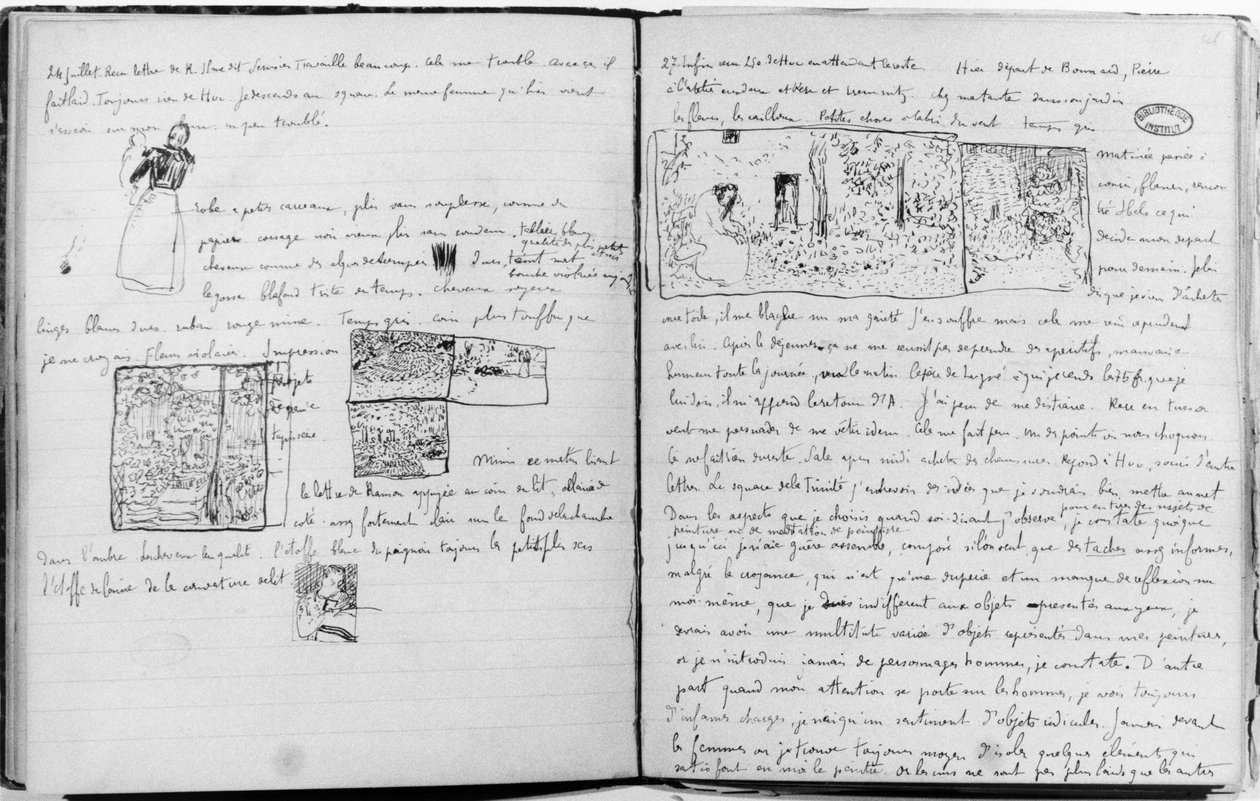 24 juillet. Recu lettre de R. Il me dit Serusier travaille beaucoup. Cela me trouble. Assez il
fait laid. Toujours rien de Huc. Je descends au square. La meme femme qu'hier vient
s'asseoir sur mon banc. un peu troublé.
Robe a petits carreaux, plis sans souplesse, comme du
papier. corsage noir vieux plis sans
tablier blanc
cheveux comme des algues detrempées
durs, teint mat
bouche violacée
le gosse blafard triste en temps. cheveux soyeux
linges blancs durs. ruban rouge mine. Temps gris. coin plus touffu que
je ne croyais. Fleurs violacées. Impression
projets
de genre
tapisserie
Mimi lisant
la lettre de Ramon appuyée au coin du lit,
coté. assez fortement clair sur le fond de la chambre
Dans l'ombre. l'etoffe blanc du peignoir toujours les petits plis secs
l'étoffe de laine de la couverture de lit
27. Enfin reçu 250 de Huc en attendant le reste. Hier départ de Bonnard, Pierre
à l'atelier et Père et chez ma tante dans son jardin
les fleurs, les cailloux. Petites choses a l'abri du vent temps gris
BIBLIOTHÈQUE
INSTITUT
matinée passée à
courir, flaner, rencon
tré Ibels ce qui
decida mon départ
pour demain. Je lui
dis que je viens d'acheter
une toile, il me blague sur ma gaieté j'en souffre mais cela me
avec lui. Apres le dejeuner ça ne me reussit pas de prendre des aperitifs, mauvaise
humeur toute la journée, vu le matin le père de Lugné à qui je rends les 75 fr. que je
lui dois, il m'apprend le retour d'A. J'ai peu de me distraire.
veut me persuader de me vêtir idem. Cela me fait peur. un des points où nous choquons.
Ce ne fait rien du reste. Sale apres midi acheter des chemises. Repond à Huc, suivi d'autres
lettres. Le square de la Trinité j'entrevois des idées que je voudrais bien mettre au net
pour en tirer des sujets de
Dans les aspects que je choisis quand soi-disant j'observe, je constate quoique
peinture ou de meditation de peinture
jusqu'ici je n'aie guère assemblé, composé si l'on veut que des taches assez informes,
malgré la croyance, qui n'est qu'une duperie et un manque de reflexion sur
moi-même, que je suis indifferent aux objets présentés aux yeux, je
devrais avoir une multitude variée d'objets représentés dans mes peintures,
or je n'introduis jamais de personnages hommes, je constate. D'autre
part quand mon attention se porte sur les hommes, je vois toujours
d'infames charges, je n'ai qu'un sentiment d'objets ridicules. Jamais devant
les femmes ou je trouve toujours moyen d'isoler quelques elements qui
satisfont en moi le peintre. Or les uns ne sont pas plus laids que les autres